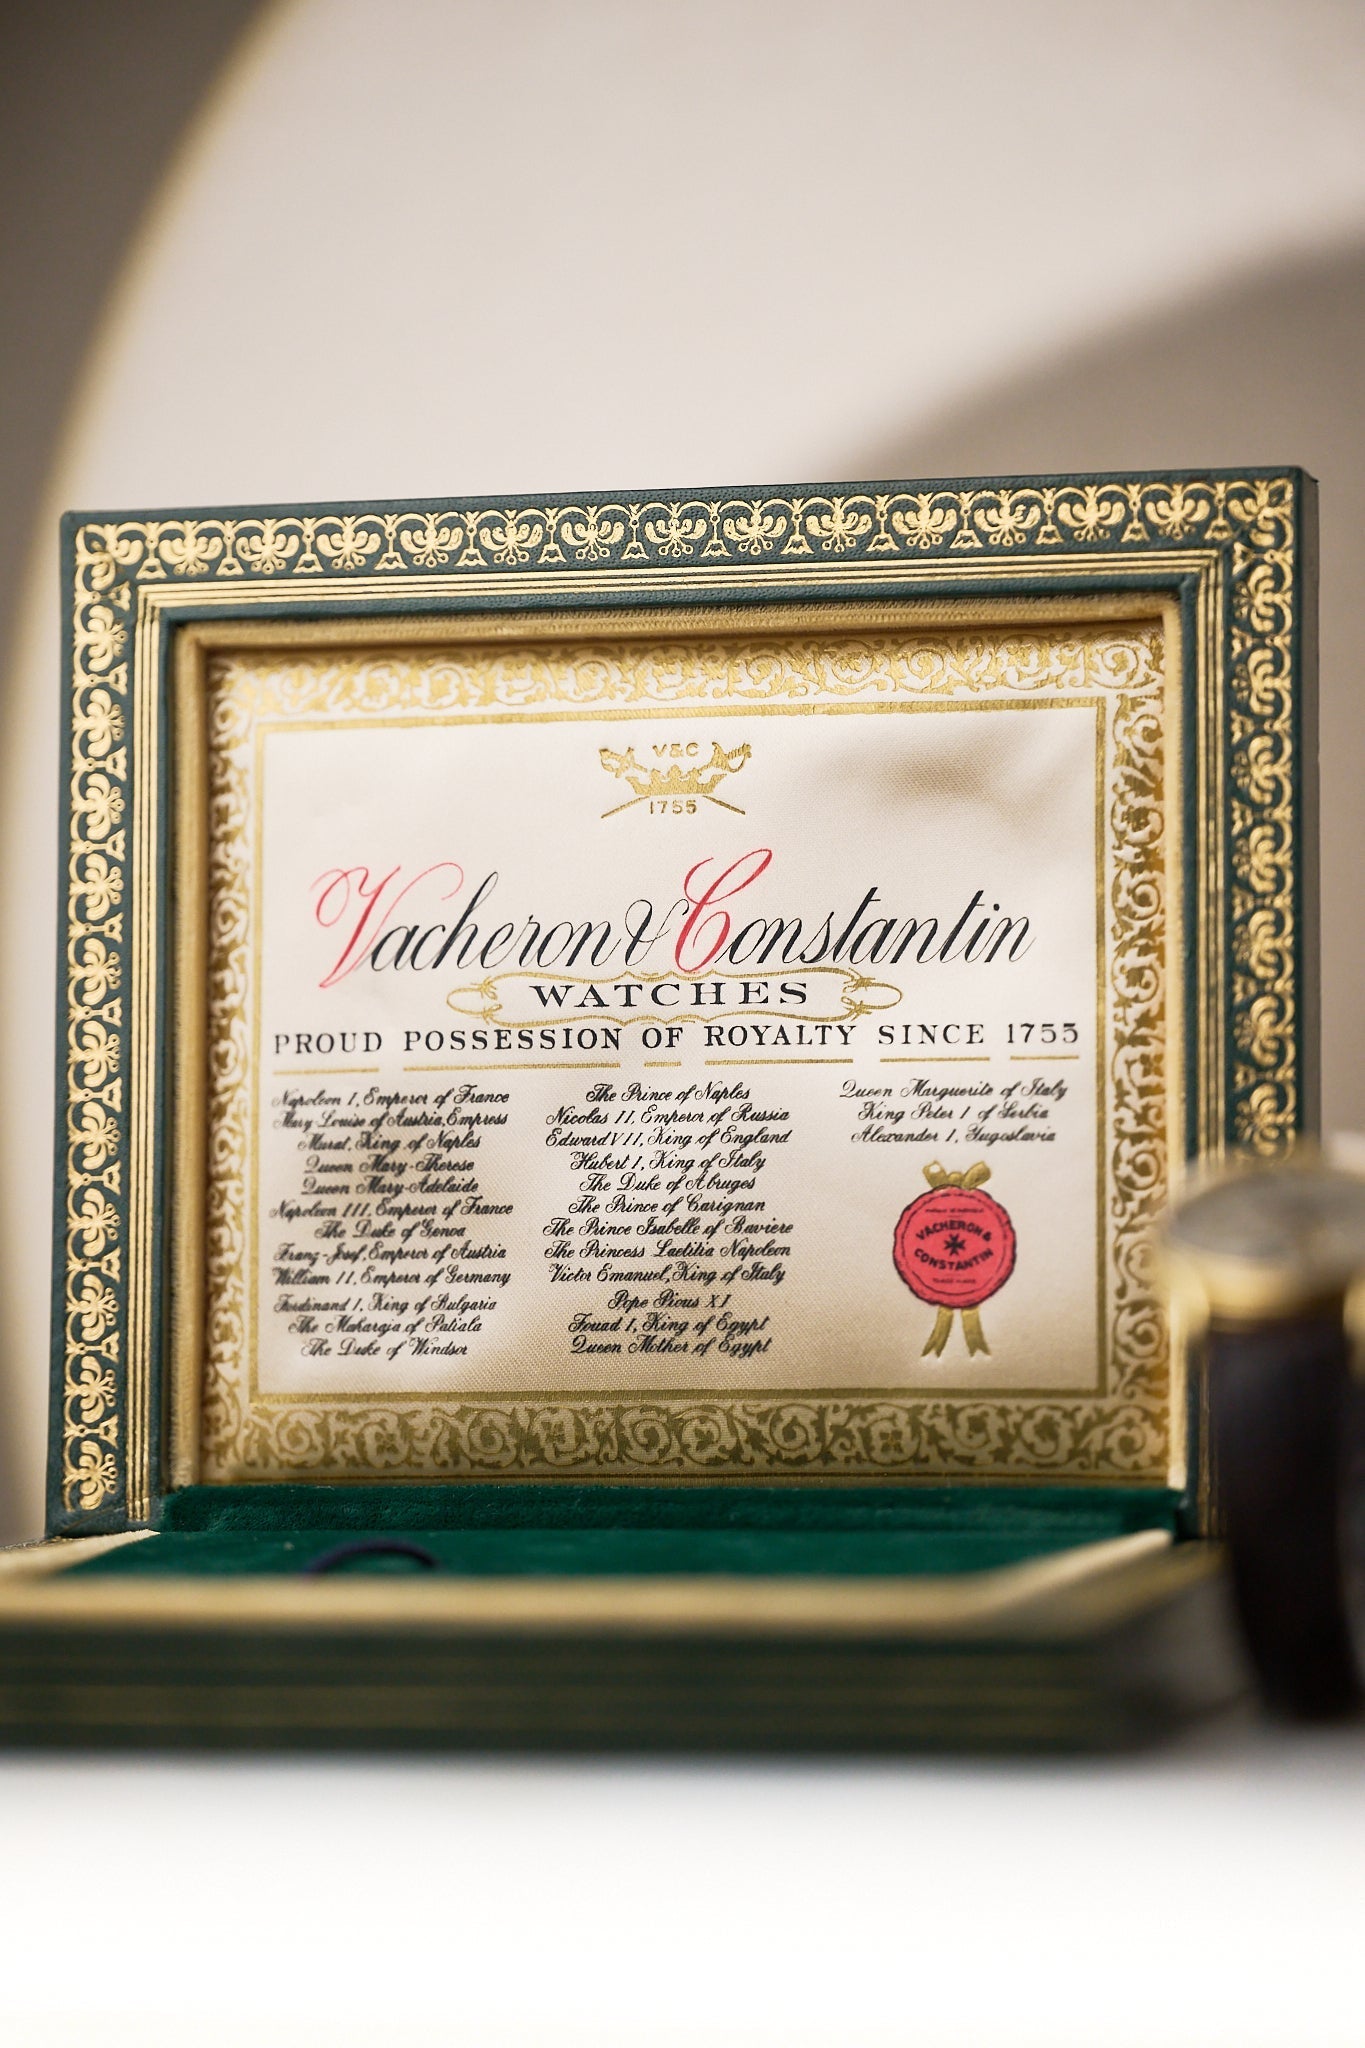 V&C
1755
Vacheron & Constantin
WATCHES
PROUD POSSESSION OF ROYALTY SINCE 1755
Napoleon I, Emperor of France
Mary Louise of Austria, Empress
Murat, King of Naples
Queen Mary-Therese
Queen Mary-Adelaide
Napoleon III, Emperor of France
The Duke of Genoa
Franz-Josef, Emperor of Austria
William II, Emperor of Germany
Ferdinand I, King of Bulgaria
The Maharaja of Patiala
The Duke of Windsor
The Prince of Naples
Nicolas II, Emperor of Russia
Edward VII, King of England
Hubert I, King of Italy
The Duke of Abruges
The Prince of Carignan
The Prince Isabelle of Baviere
The Princess Laetitia Napoleon
Victor Emanuel, King of Italy
Pope Pious XI
Fouad I, King of Egypt
Queen Mother of Egypt
Queen Marguerite of Italy
King Peter I of Serbia
Alexander I, Yugoslavia
VACHERON &
CONSTANTIN